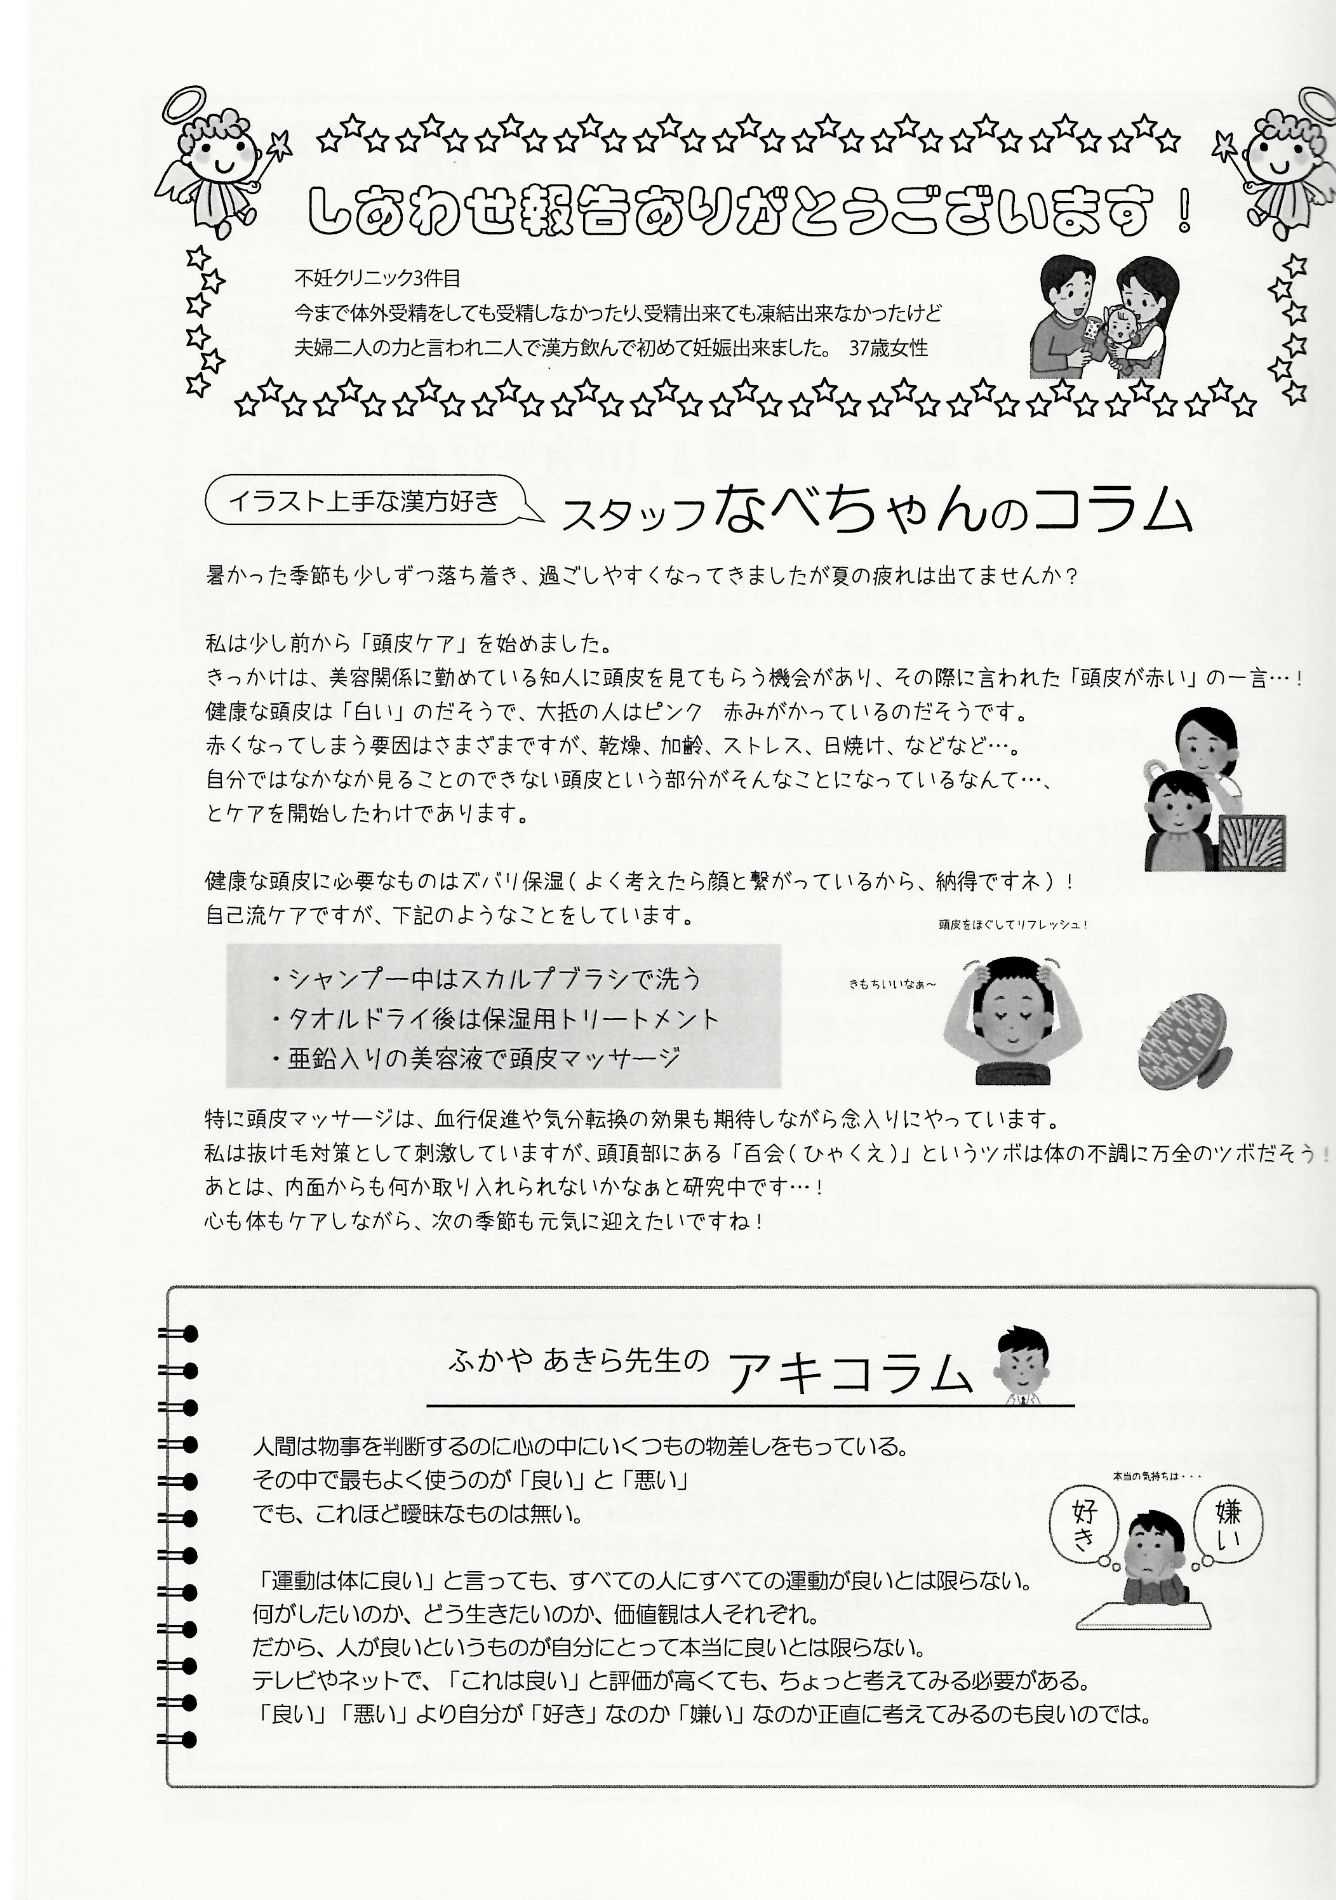 しあわせ報告ありがとうございます！
不妊クリニック3件目
今まで体外受精をしても受精しなかったり、受精出来ても凍結出来なかったけど
夫婦二人の力と言われ二人で漢方飲んで初めて妊娠出来ました。　37歳女性
イラスト上手な漢方好き
スタッフなべちゃんのコラム
暑かった季節も少しずつ落ち着き、過ごしやすくなってきましたが夏の疲れは出てませんか？
私は少し前から「頭皮ケア」を始めました。
きっかけは、美容関係に勤めている知人に頭皮を見てもらう機会があり、その際に言われた「頭皮が赤い」の一言…！
健康な頭皮は「白い」のだそうで、大抵の人はピンク　赤みがかっているのだそうです。
赤くなってしまう要因はさまざまですが、乾燥、加齢、ストレス、日焼け、などなど…。
自分ではなかなか見ることのできない頭皮という部分がそんなことになっているなんて…、
とケアを開始したわけであります。
健康な頭皮に必要なものはズバリ保湿（よく考えたら顔と繋がっているから、納得ですネ）！
自己流ケアですが、下記のようなことをしています。
頭皮をほぐしてリフレッシュ！
きもちいいなぁ～
・シャンプー中はスカルプブラシで洗う
・タオルドライ後は保湿用トリートメント
・亜鉛入りの美容液で頭皮マッサージ
特に頭皮マッサージは、血行促進や気分転換の効果も期待しながら念入りにやっています。
私は抜け毛対策として刺激していますが、頭頂部にある「百会（ひゃくえ）」というツボは体の不調に万全のツボだそう！
あとは、内面からも何か取り入れられないかなぁと研究中です…！
心も体もケアしながら、次の季節も元気に迎えたいですね！
ふかや あきら先生の アキコラム
人間は物事を判断するのに心の中にいくつもの物差しをもっている。
その中で最もよく使うのが「良い」と「悪い」
でも、これほど曖昧なものは無い。
本当の気持ちは・・・
好き
嫌い
「運動は体に良い」と言っても、すべての人にすべての運動が良いとは限らない。
何がしたいのか、どう生きたいのか、価値観は人それぞれ。
だから、人が良いというものが自分にとって本当に良いとは限らない。
テレビやネットで、「これは良い」と評価が高くても、ちょっと考えてみる必要がある。
「良い」「悪い」より自分が「好き」なのか「嫌い」なのか正直に考えてみるのも良いのでは。